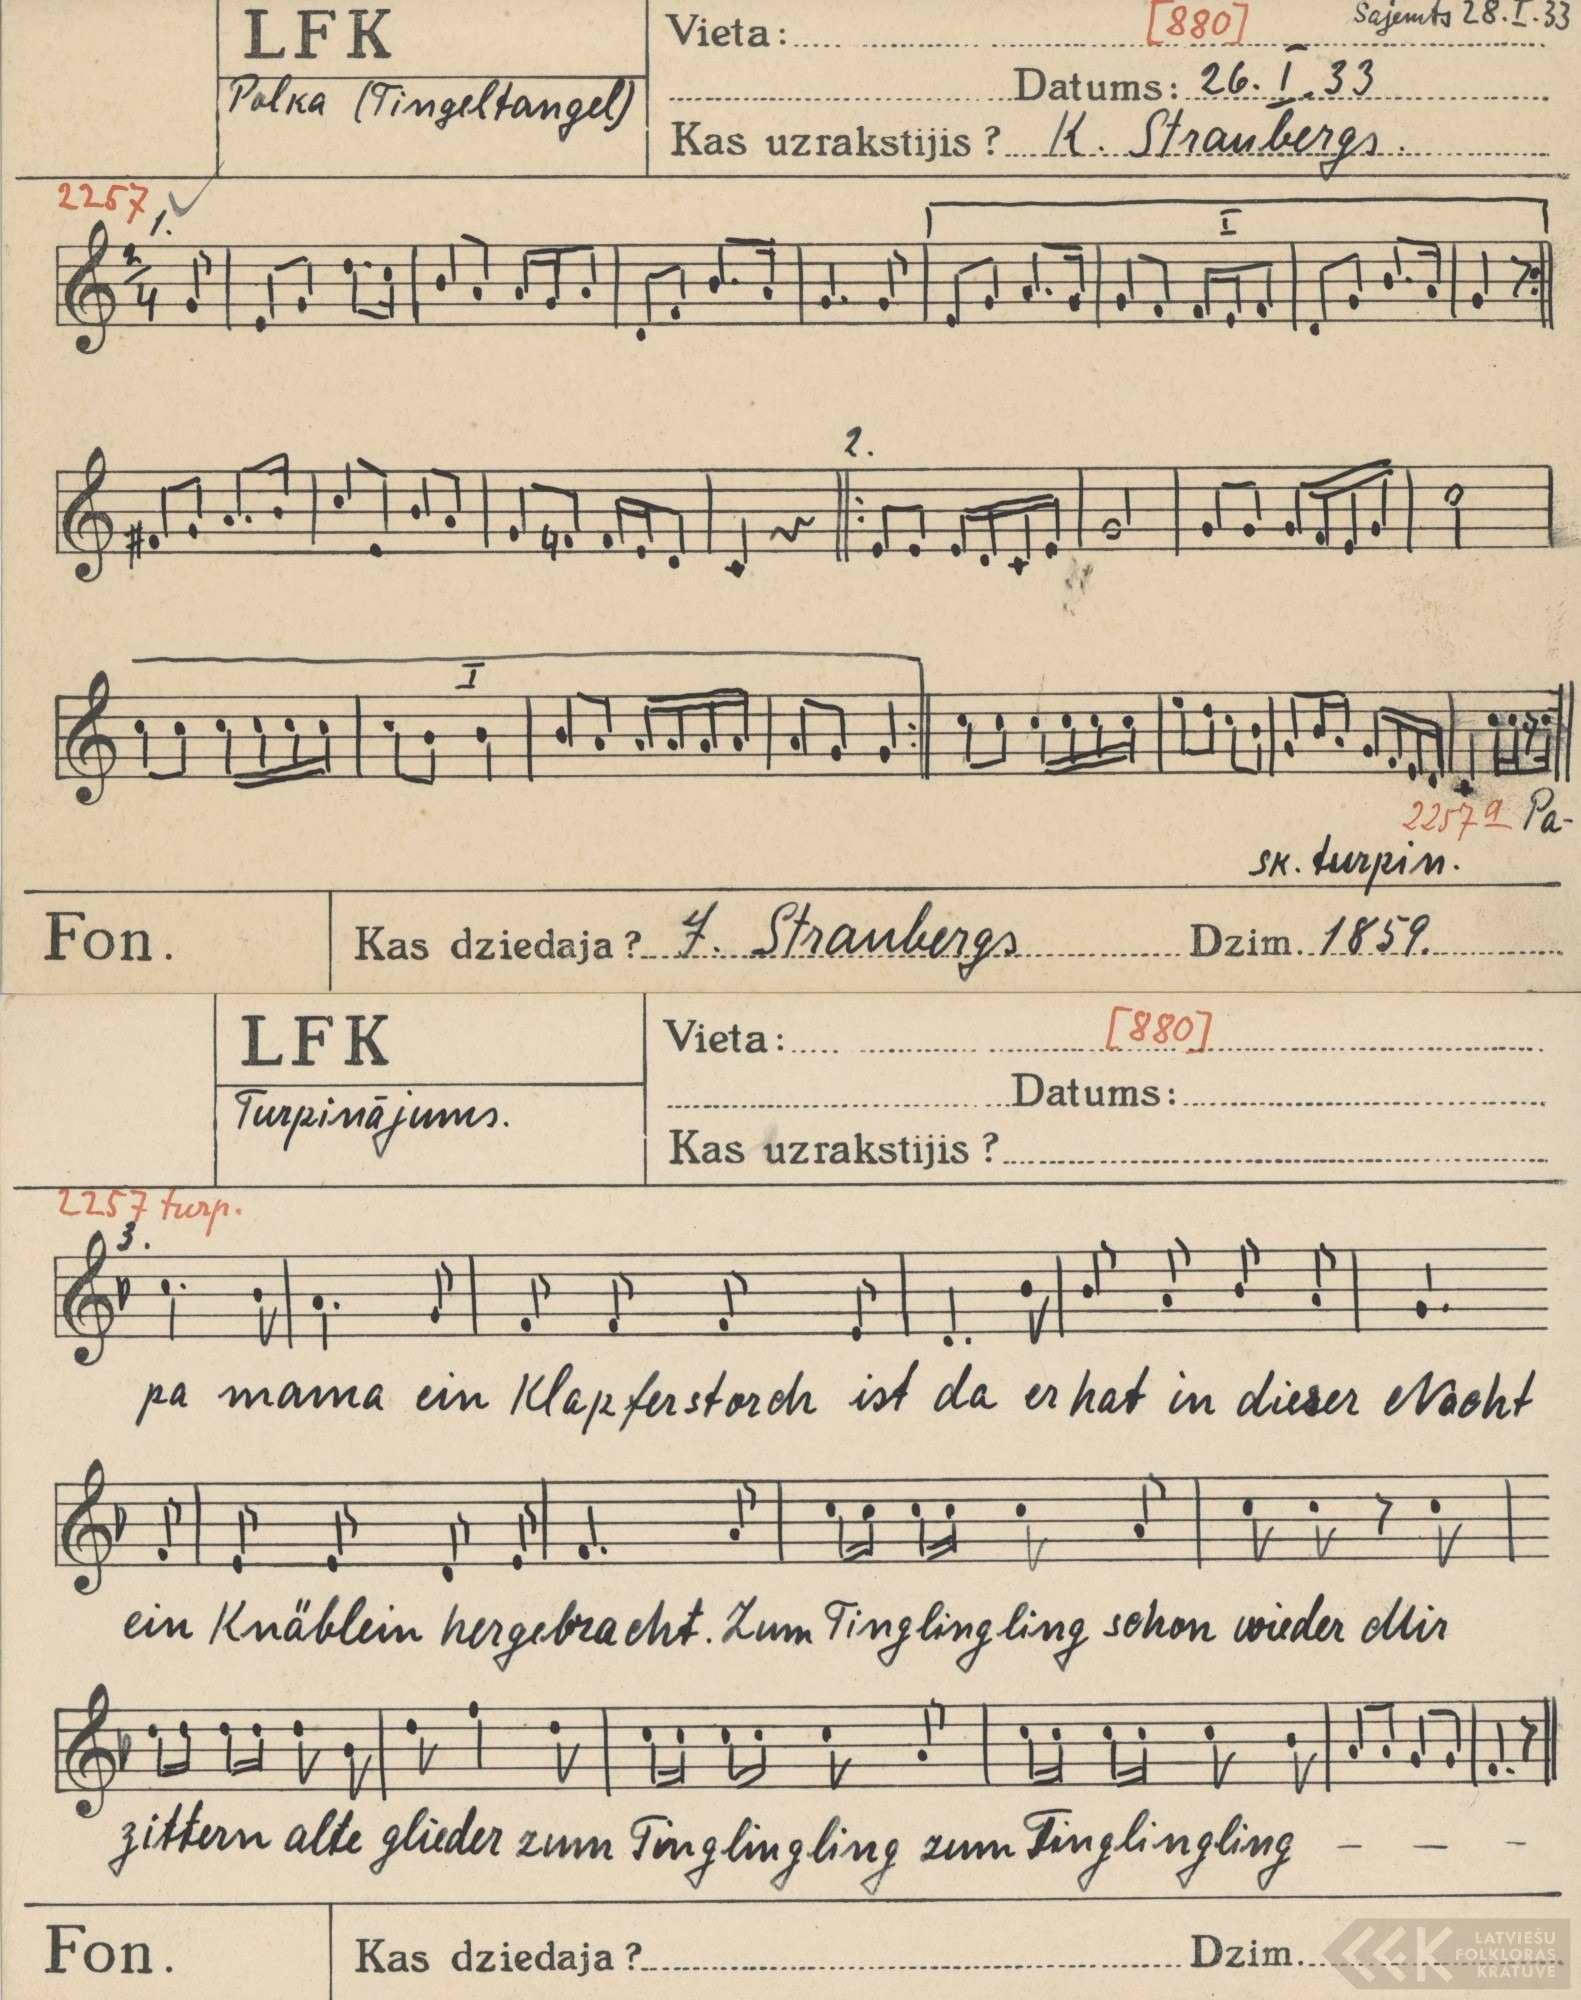 LFK
Vieta: [880] Sajemts 28.I.33
Polka (Tingeltangel)
Datums: 26.I.33
Kas uzrakstijis? K. Straubergs.
2257
1.
2/4
I
2.
I
2257a Pa-
sk. turpin.
Fon. Kas dziedaja? J. Straubergs Dzim. 1859.
LFK
Vieta: [880]
Turpinājums.
Datums:
Kas uzrakstijis?
2257 turp.
3.
pa mama ein Klapferstorch ist da er hat in dieser Nacht
ein Knäblein hergebracht. Zum Tinglingling schon wieder Mir
zittern alte glieder zum Tinglingling zum Tinglingling – – –
Fon. Kas dziedaja? Dzim.
LATVIEŠU
FOLKLORAS
KRĀTUVE